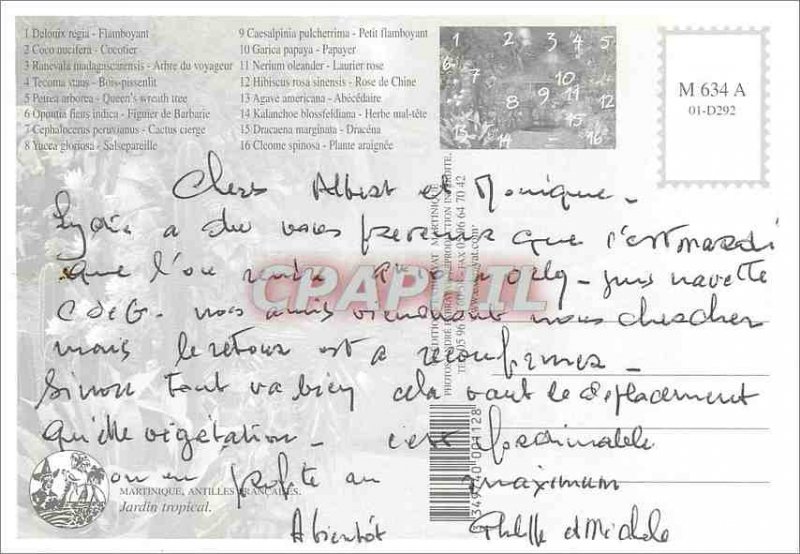 1 Delonix regia - Flamboyant
2 Coco nucifera - Cocotier
3 Ranevala madagascarensis - Arbre du voyageur
4 Tecoma stans - Bois-pissenlit
5 Petrea arborea - Queen's wreath tree
6 Opontia ficus indica - Figuier de Barbarie
7 Cephalocereus peruvianus - Cactus cierge
8 Yucca gloriosa - Salsepareille
9 Caesalpinia pulcherrima - Petit flamboyant
10 Garica papaya - Papayer
11 Nerium oleander - Laurier rose
12 Hibiscus rosa sinensis - Rose de Chine
13 Agave americana - Abécédaire
14 Kalanchoe blossfeldiana - Herbe mal-tête
15 Dracaena marginata - Dracéna
16 Cleome spinosa - Plante araignée
1 2 3 4 5
6 7 10
8 9 11 12
13 14 15 16
M 634 A
01-D292
Chers Albert et Monique -
Lydia a du vous prevenir que c'est mardi
que l'on rentre - puis navette
CDEG - nos amis viendront nous chercher
mais le retour est a reconfirmer -
Sinon tout va bien cela vaut le déplacement
Quelle végétation - c'est
on en profite au maximum
A bientôt
CPAPHIL
MARTINIQUE, ANTILLES FRANÇAISES.
Jardin tropical.